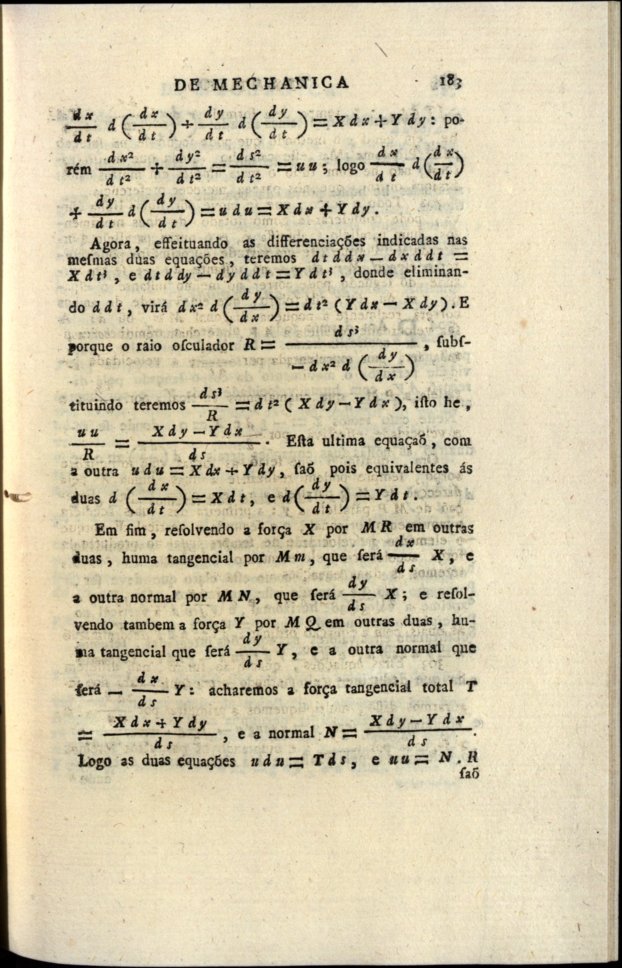 DE MECHANICA 183
dx/dt d(dx/dt) + dy/dt d(dy/dt) = Xdx + Ydy : po-
rém dx²/dt² + dy²/dt² = ds²/dt² = uu ; logo dx/dt d(dx/dt)
+ dy/dt d(dy/dt) = udu = Xdx + Ydy .
Agora , effeituando as differenciações indicadas nas
meſmas duas equações , teremos dtddx — dxddt =
Xdt³ , e dtddy — dyddt = Ydt³ , donde eliminan-
do ddt , virá dx² d(dy/dx) = dt² (Ydx — Xdy). E
porque o raio oſculador R = ds³/— dx² d(dy/dx) , ſubſ-
tituindo teremos ds³/R = dt² ( Xdy — Ydx ), iſto he ,
uu/R = Xdy — Ydx/ds . Eſta ultima equaçaõ , com
a outra udu = Xdx + Ydy , ſaõ pois equivalentes ás
duas d (dx/dt) = Xdt , e d(dy/dt) = Ydt .
Em fim , reſolvendo a força X por MR em outras
duas , huma tangencial por Mm , que ſerá dx/ds X , e
a outra normal por MN , que ſerá dy/ds X ; e reſol-
vendo tambem a força Y por MQ em outras duas , hu-
ma tangencial que ſerá dy/ds Y , e a outra normal que
ſerá — dx/ds Y : acharemos a força tangencial total T
= Xdx + Ydy/ds , e a normal N = Xdy — Ydx/ds .
Logo as duas equações udu = Tds , e uu = N . R
ſaõ